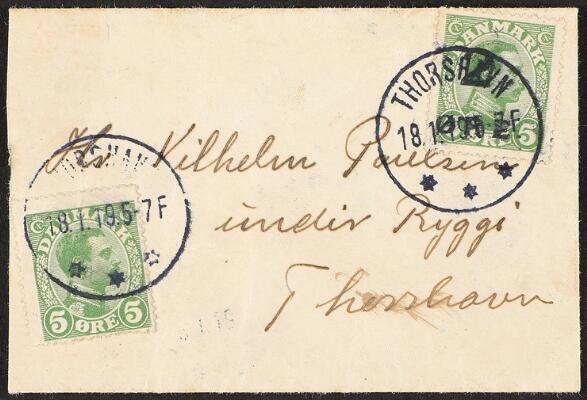 DANMARK
2 ØRE
5
THORSHAVN
18.1.19.5-7F
THORSHAVN
18.1.19.5-7F
DANMARK
5 ØRE 5
Hr Vilhelm Poulsen
under Ryggi
Thorshavn